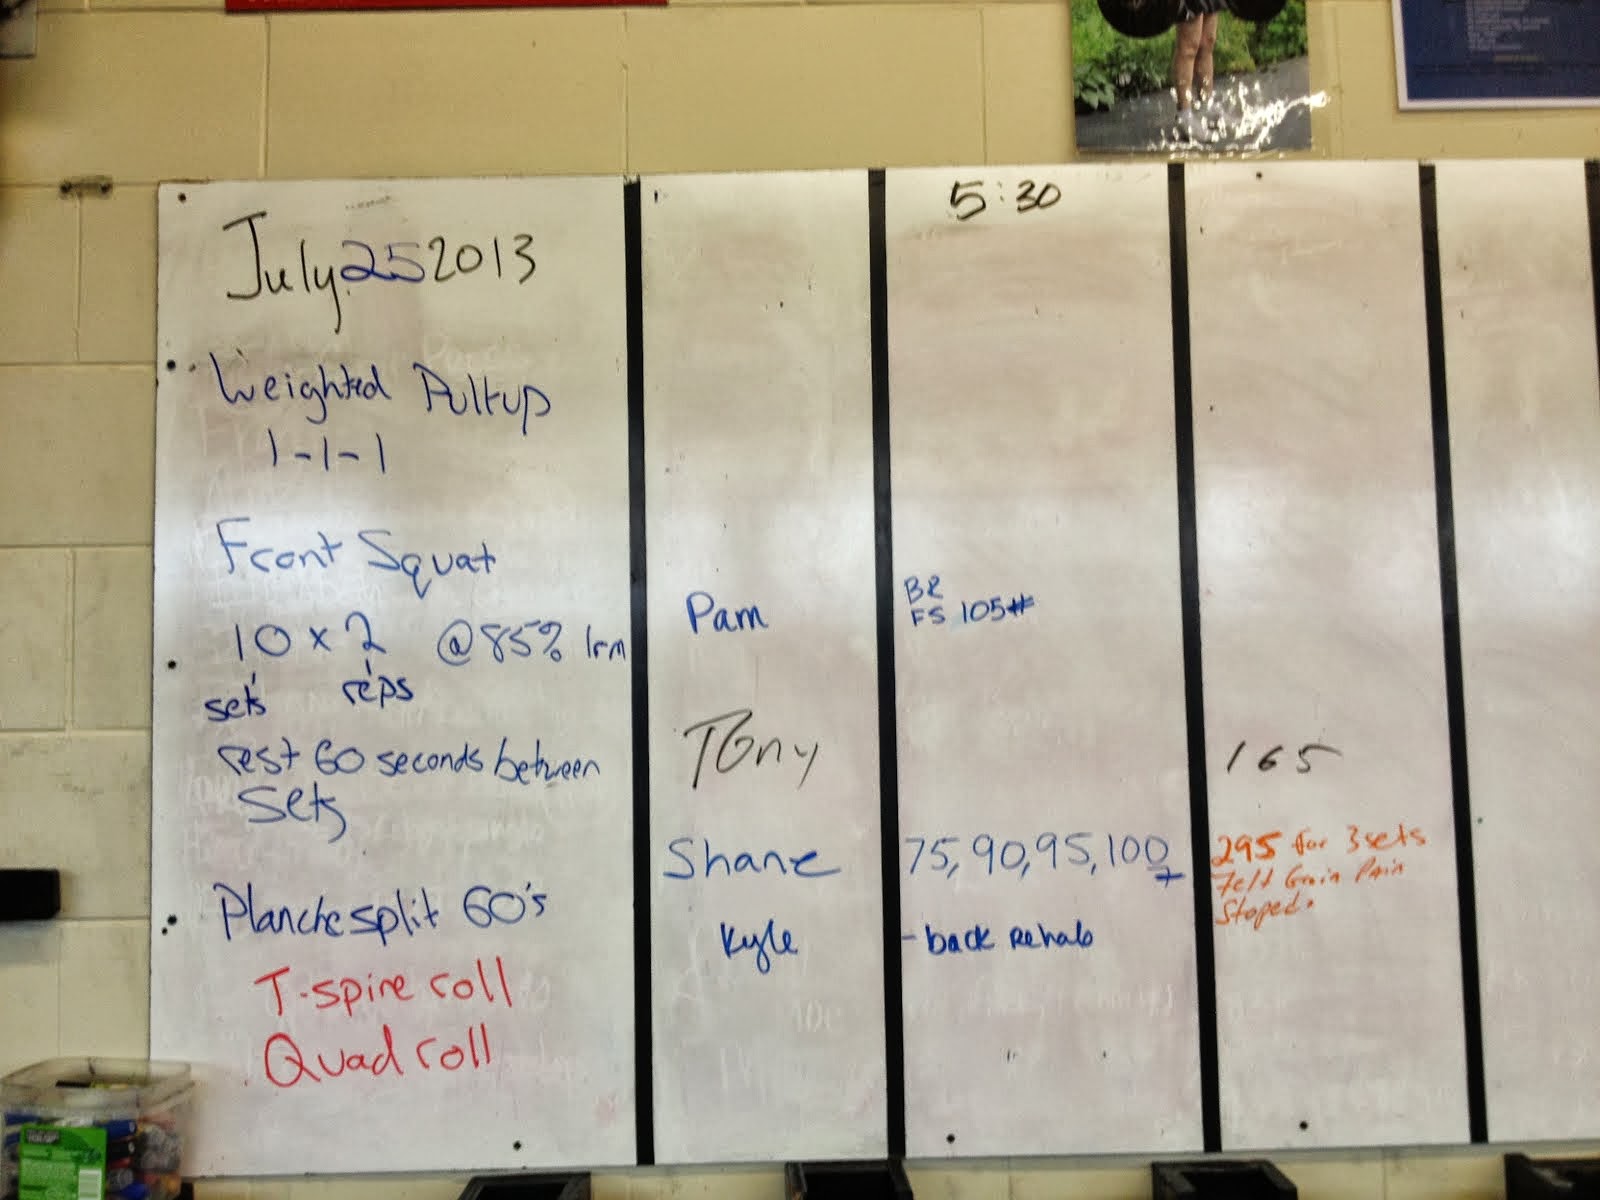 July 25 2013
Weighted Pullup
1-1-1
Front Squat
10 x 2 @ 85% 1rm
sets reps
rest 60 seconds between
sets
Planche split 60's
T-spine roll
Quad roll
5:30
Pam
BR
FS 105#
Tony
165
Shane
75, 90, 95, 100
295 for 3 sets
Felt Groin Pain
Stoped.
Kyle
- back rehab